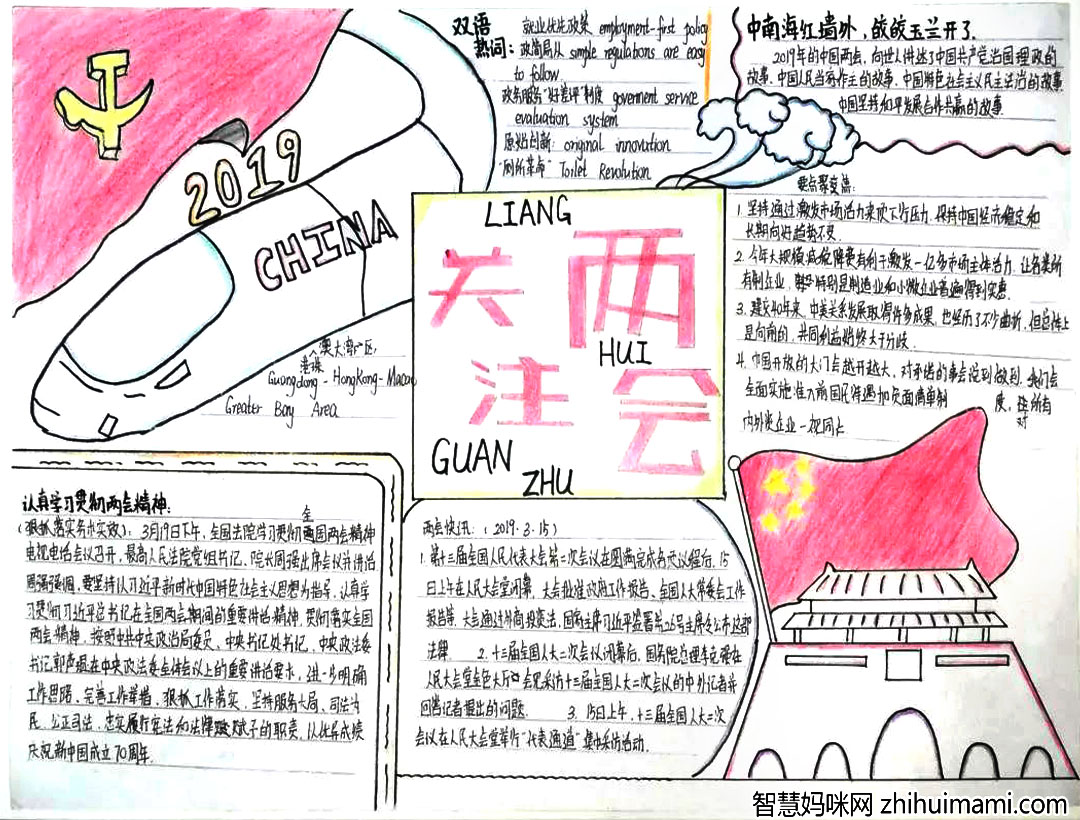 双语
热词:
就业优先政策 employment-first policy
政简易从 simple regulations are easy
to follow
政务服务"好差评"制度 goverment service
evaluation system
原始创新: original innovation
"厕所革命" Toilet Revolution
中南海红墙外,皎皎玉兰开了.
2019年的中国两点,向世人讲述了中国共产党治国理政的
故事.中国人民当家作主的故事.中国特色社会主义民主法治的故事
中国坚持和平发展合作共赢的故事.
2019
CHINA
澳大湾区:
港珠
Guangdong-HongKong-Macao
Greater Bay Area
LIANG
关 两
HUI
注 会
GUAN
ZHU
要点聚变点:
1. 坚持通过激发市场活力来顶下行压力.保持中国经济稳定和
长期向好趋势不变.
2. 今年大规模减税降费有利于激发一亿多市场主体活力.让各类所
有制企业,特别是制造业和小微企业普遍得到实惠.
3. 建交40年来,中美关系发展取得许多成果,也经历了不少曲折,但总体上
是向前的,共同利益始终大于分歧.
4. 中国开放的大门会越开越大,对承诺的事会说到做到.我们会
全面实施准入前国民待遇加负面清单制度,对所有
内外资企业一视同仁
认真学习贯彻两会精神:
(狠抓落实务求实效): 3月19日下午,全国法院学习贯彻全国两会精神
电视电话会议召开,最高人民法院党组书记、院长周强出席会议并讲话
周强强调,要坚持以习近平新时代中国特色社会主义思想为指导,认真学
习贯彻习近平总书记在全国两会期间的重要讲话精神,贯彻落实全国
两会精神,按照中共中央政治局委员、中央书记处书记、中央政法委
书记郭声琨在中央政法委全体会议上的重要讲话要求,进一步明确
工作思路、完善工作举措、狠抓工作落实,坚持服务大局、司法为
民、公正司法,忠实履行宪法和法律赋予的职责,以优异成绩
庆祝新中国成立70周年.
两会快讯:(2019.3.15)
1. 第十三届全国人民代表大会第二次会议在圆满完成各项议程后,15
日上午在人民大会堂闭幕,大会批准政府工作报告、全国人大常委会工作
报告等,大会通过外商投资法,国家主席习近平签署第26号主席令公布这部
法律. 2. 十三届全国人大二次会议闭幕后,国务院总理李克强在
人民大会堂金色大厅会见采访十三届全国人大二次会议的中外记者并
回答记者提出的问题. 3. 15日上午,十三届全国人大二次
会议在人民大会堂举行"代表通道"集中采访活动.
智慧妈咪网 zhihuimami.com